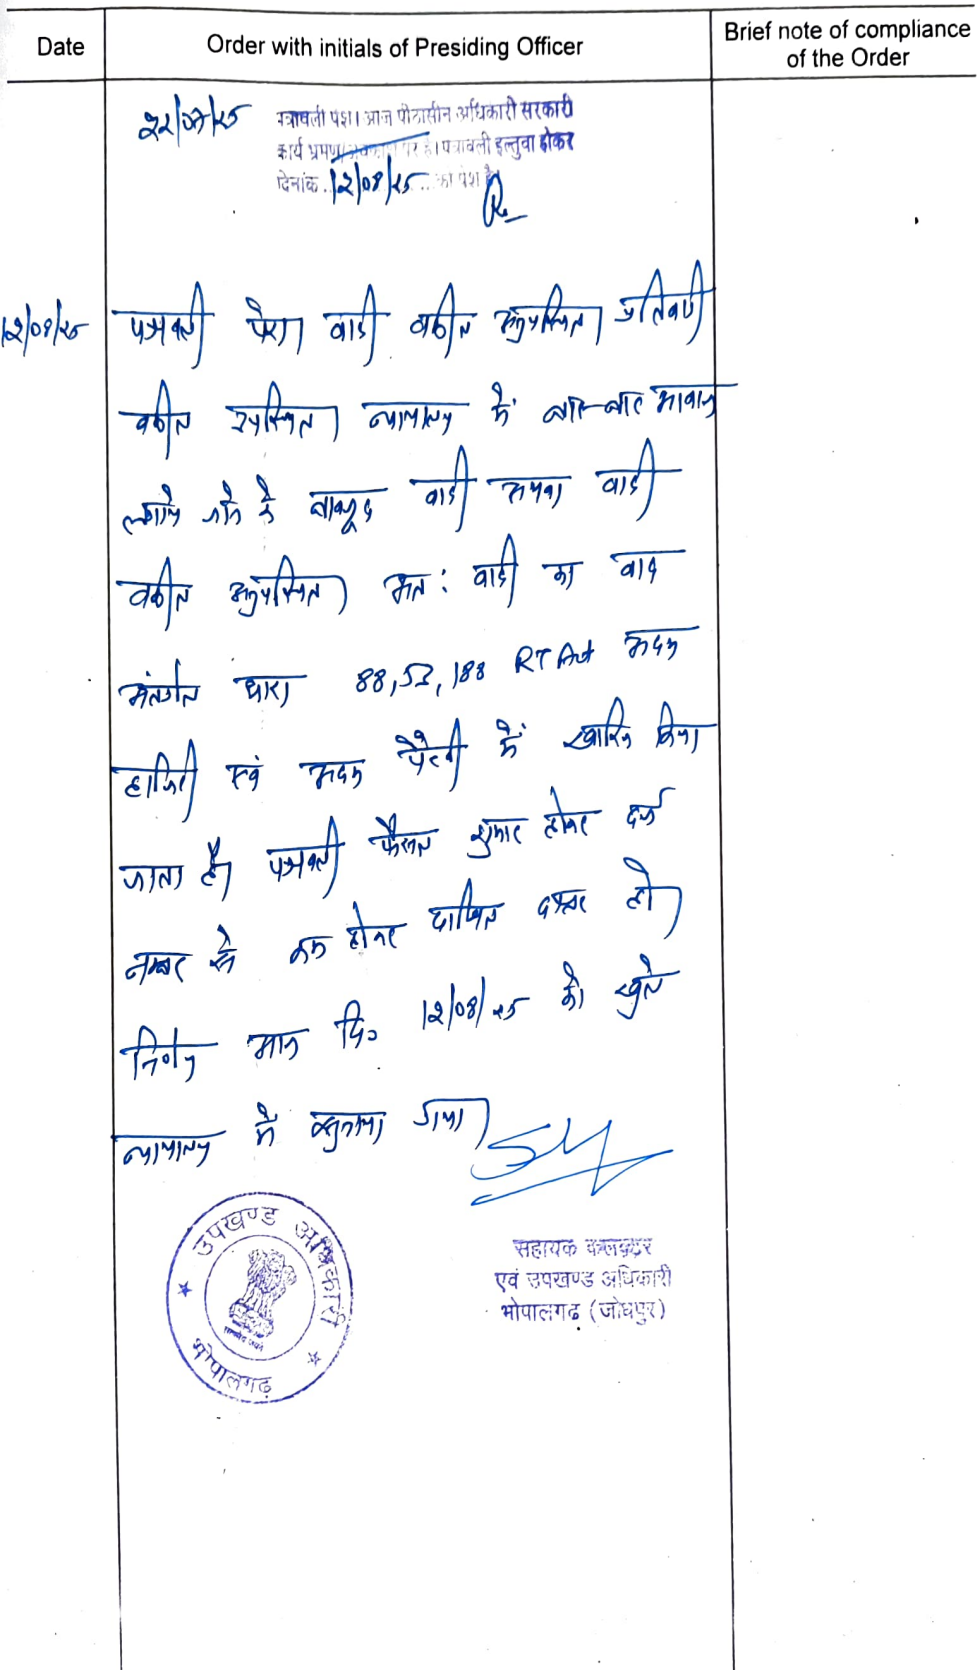 Date
Order with initials of Presiding Officer
Brief note of compliance
of the Order
22/07/25
पत्रावली पेश। आज पीठासीन अधिकारी सरकारी
कार्य भ्रमण/अवकाश पर है। पत्रावली इल्तुवा होकर
दिनांक 12/08/25 को पेश है
12/08/25
पत्रावली पेश। वादी वकील अनुपस्थित। प्रतिवादी
वकील उपस्थित। न्यायालय में बार-बार आवाज
लगाये जाने के बावजूद वादी अथवा वादी
वकील अनुपस्थित। अतः वादी का वाद
अंतर्गत धारा 88, 53, 188 RT Act अदम
हाजिरी एवं अदम पैरवी में खारिज किया
जाता है। पत्रावली फैसल शुमार होकर दर्ज
नम्बर से कम होकर दाखिल दफ्तर हो।
निर्णय आज दि० 12/08/25 को खुले
न्यायालय में सुनाया गया।
सहायक कलक्टर
एवं उपखण्ड अधिकारी
भोपालगढ़ (जोधपुर)
उपखण्ड अधिकारी
भोपालगढ़